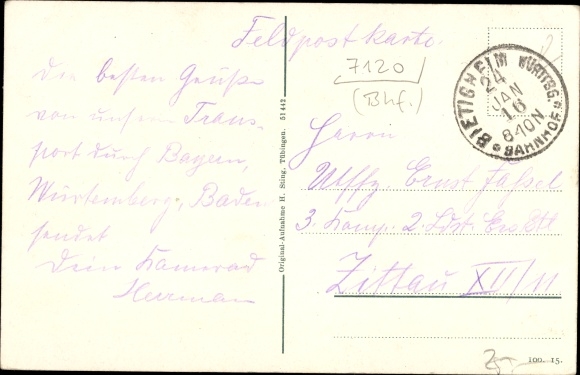 Feldpostkarte.
Die besten Grüße
von unserm Trans-
port durch Bayern,
Würtemberg, Baden
sendet
Dein Kamerad
Herrman
Original-Aufnahme H. Sting, Tübingen. 51442
7120
(Bhf.)
BIETIGHEIM WÜRTTBG.
24
JAN
16
8-10N
BAHNHOF
Herrn
Uffz. Ernst
3. Komp. 2. Ldst. Ers. Btl
Zittau XII/11
100. 15.